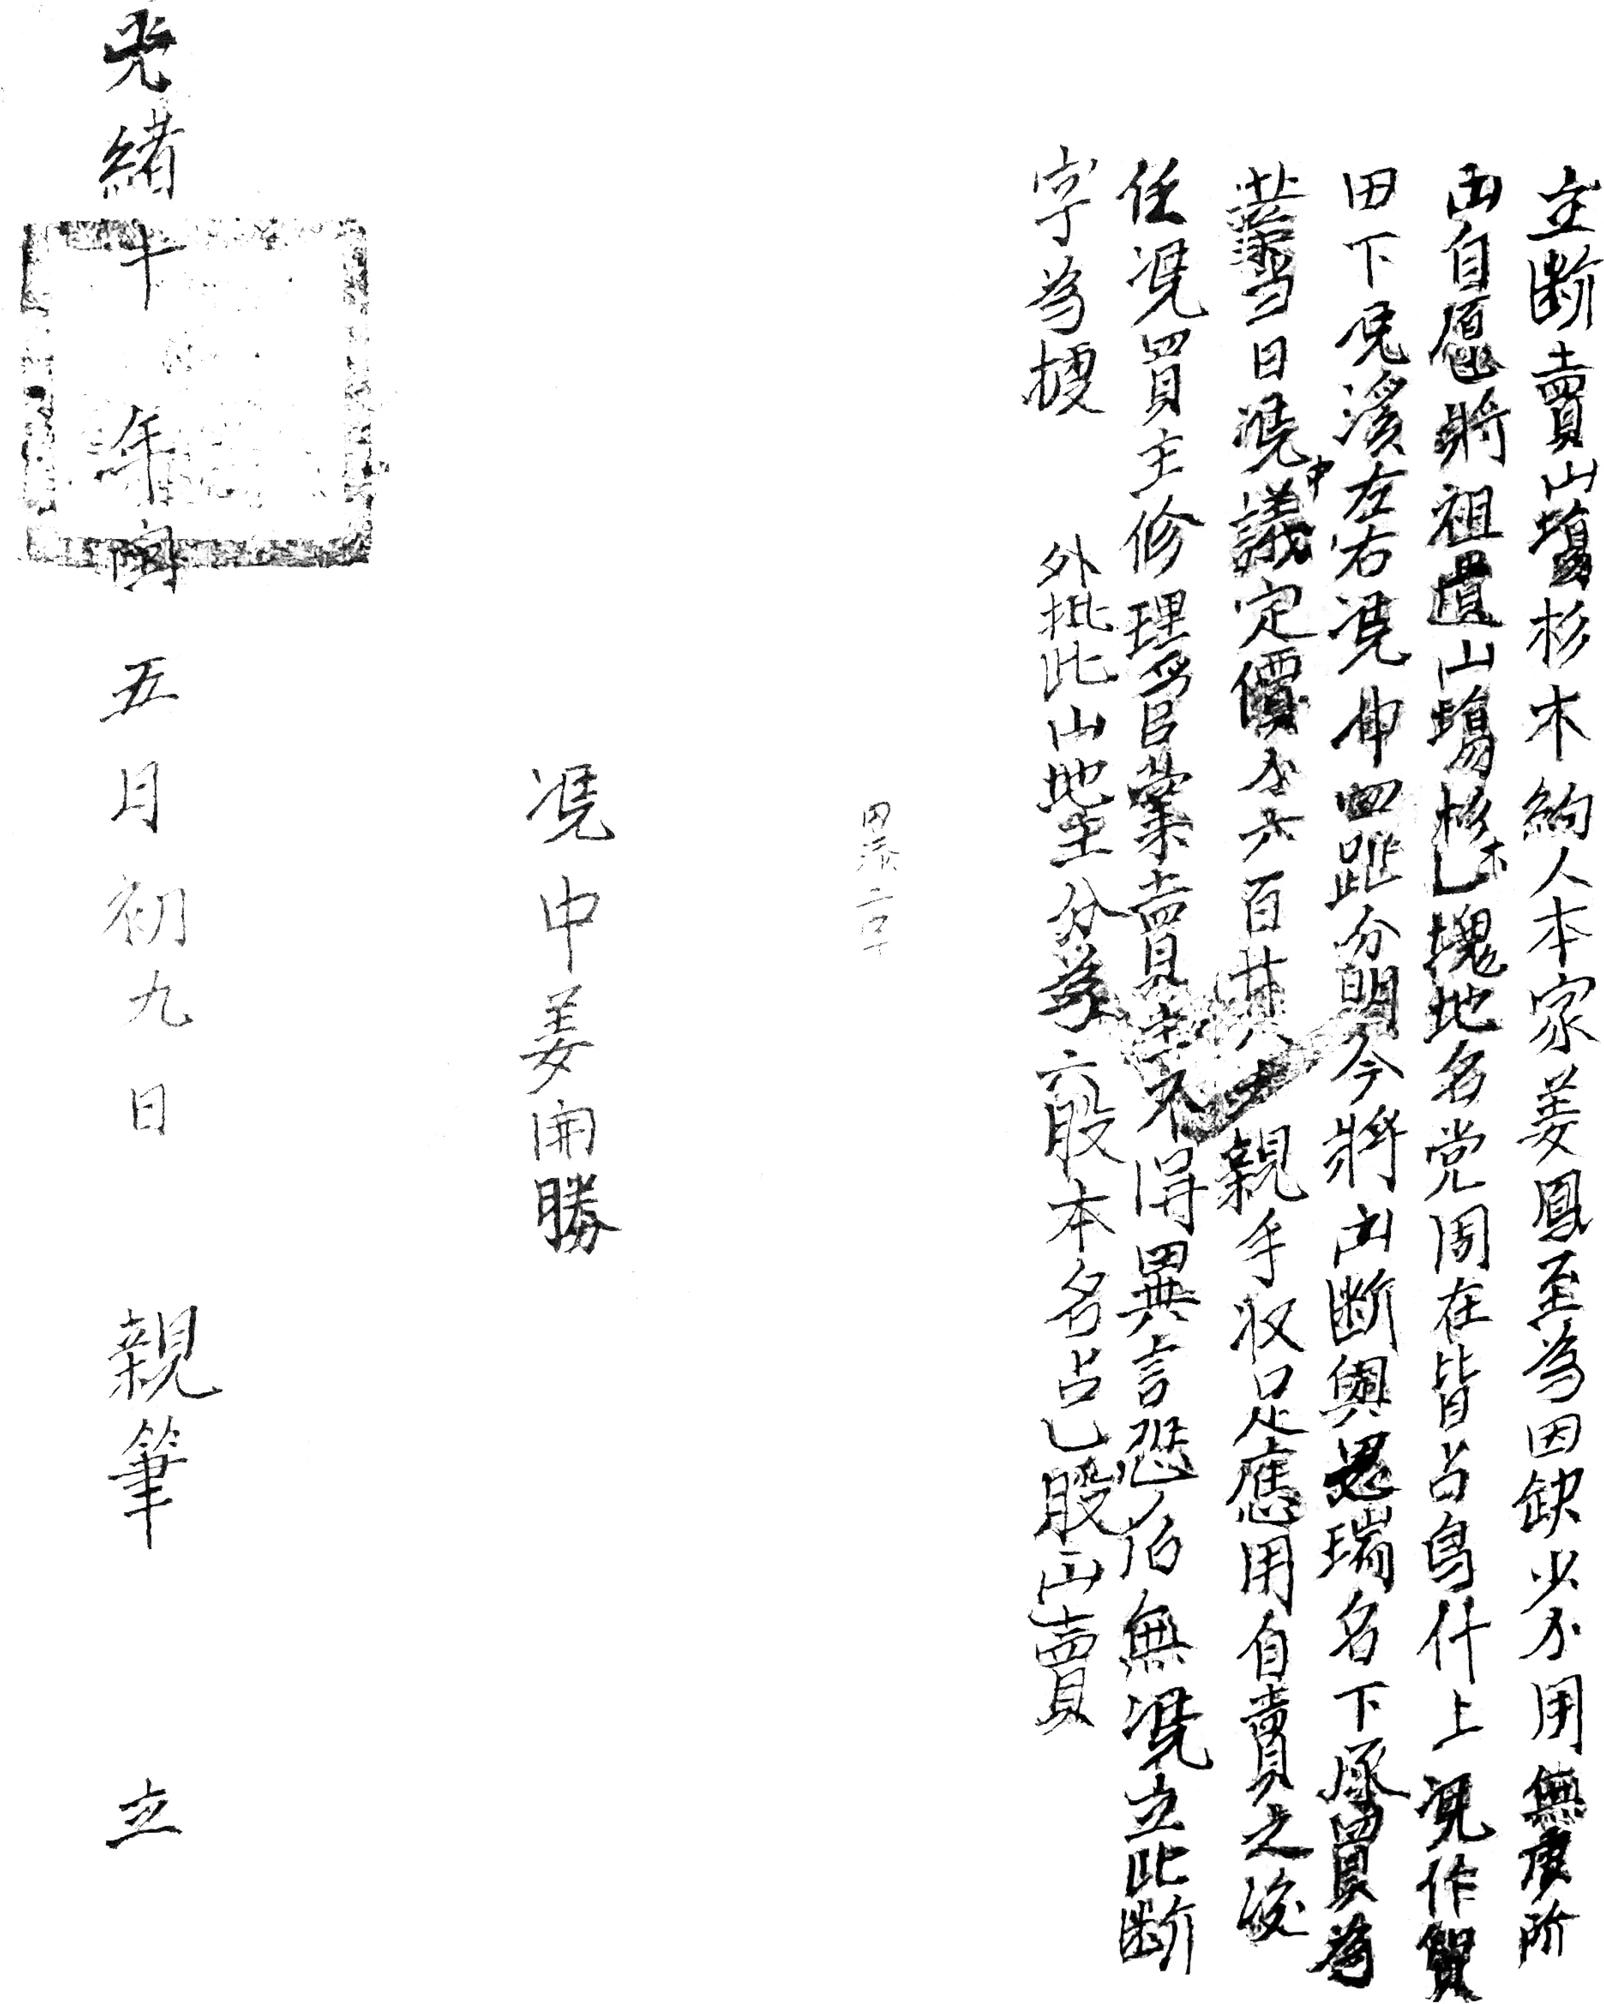 立断賣山塲杉木約人本家姜鳳至為因缺少又用無處所
出自愿將祖遺山塲杉木乚塊地名党周在皆占烏什上凴作賢
田下凴溪左右凴冲四趾分明今將出断與恩瑞名下承買為
業當日凴中議定價又六百其又親手收足應用自賣之後
任凴買主修理管業賣主不得異言恐後無凴立此断
字為據
外批此山地主分為六股本名占乚股出賣
田添二字
凴中姜開勝
光緒十年閏五月初九日 親筆 立